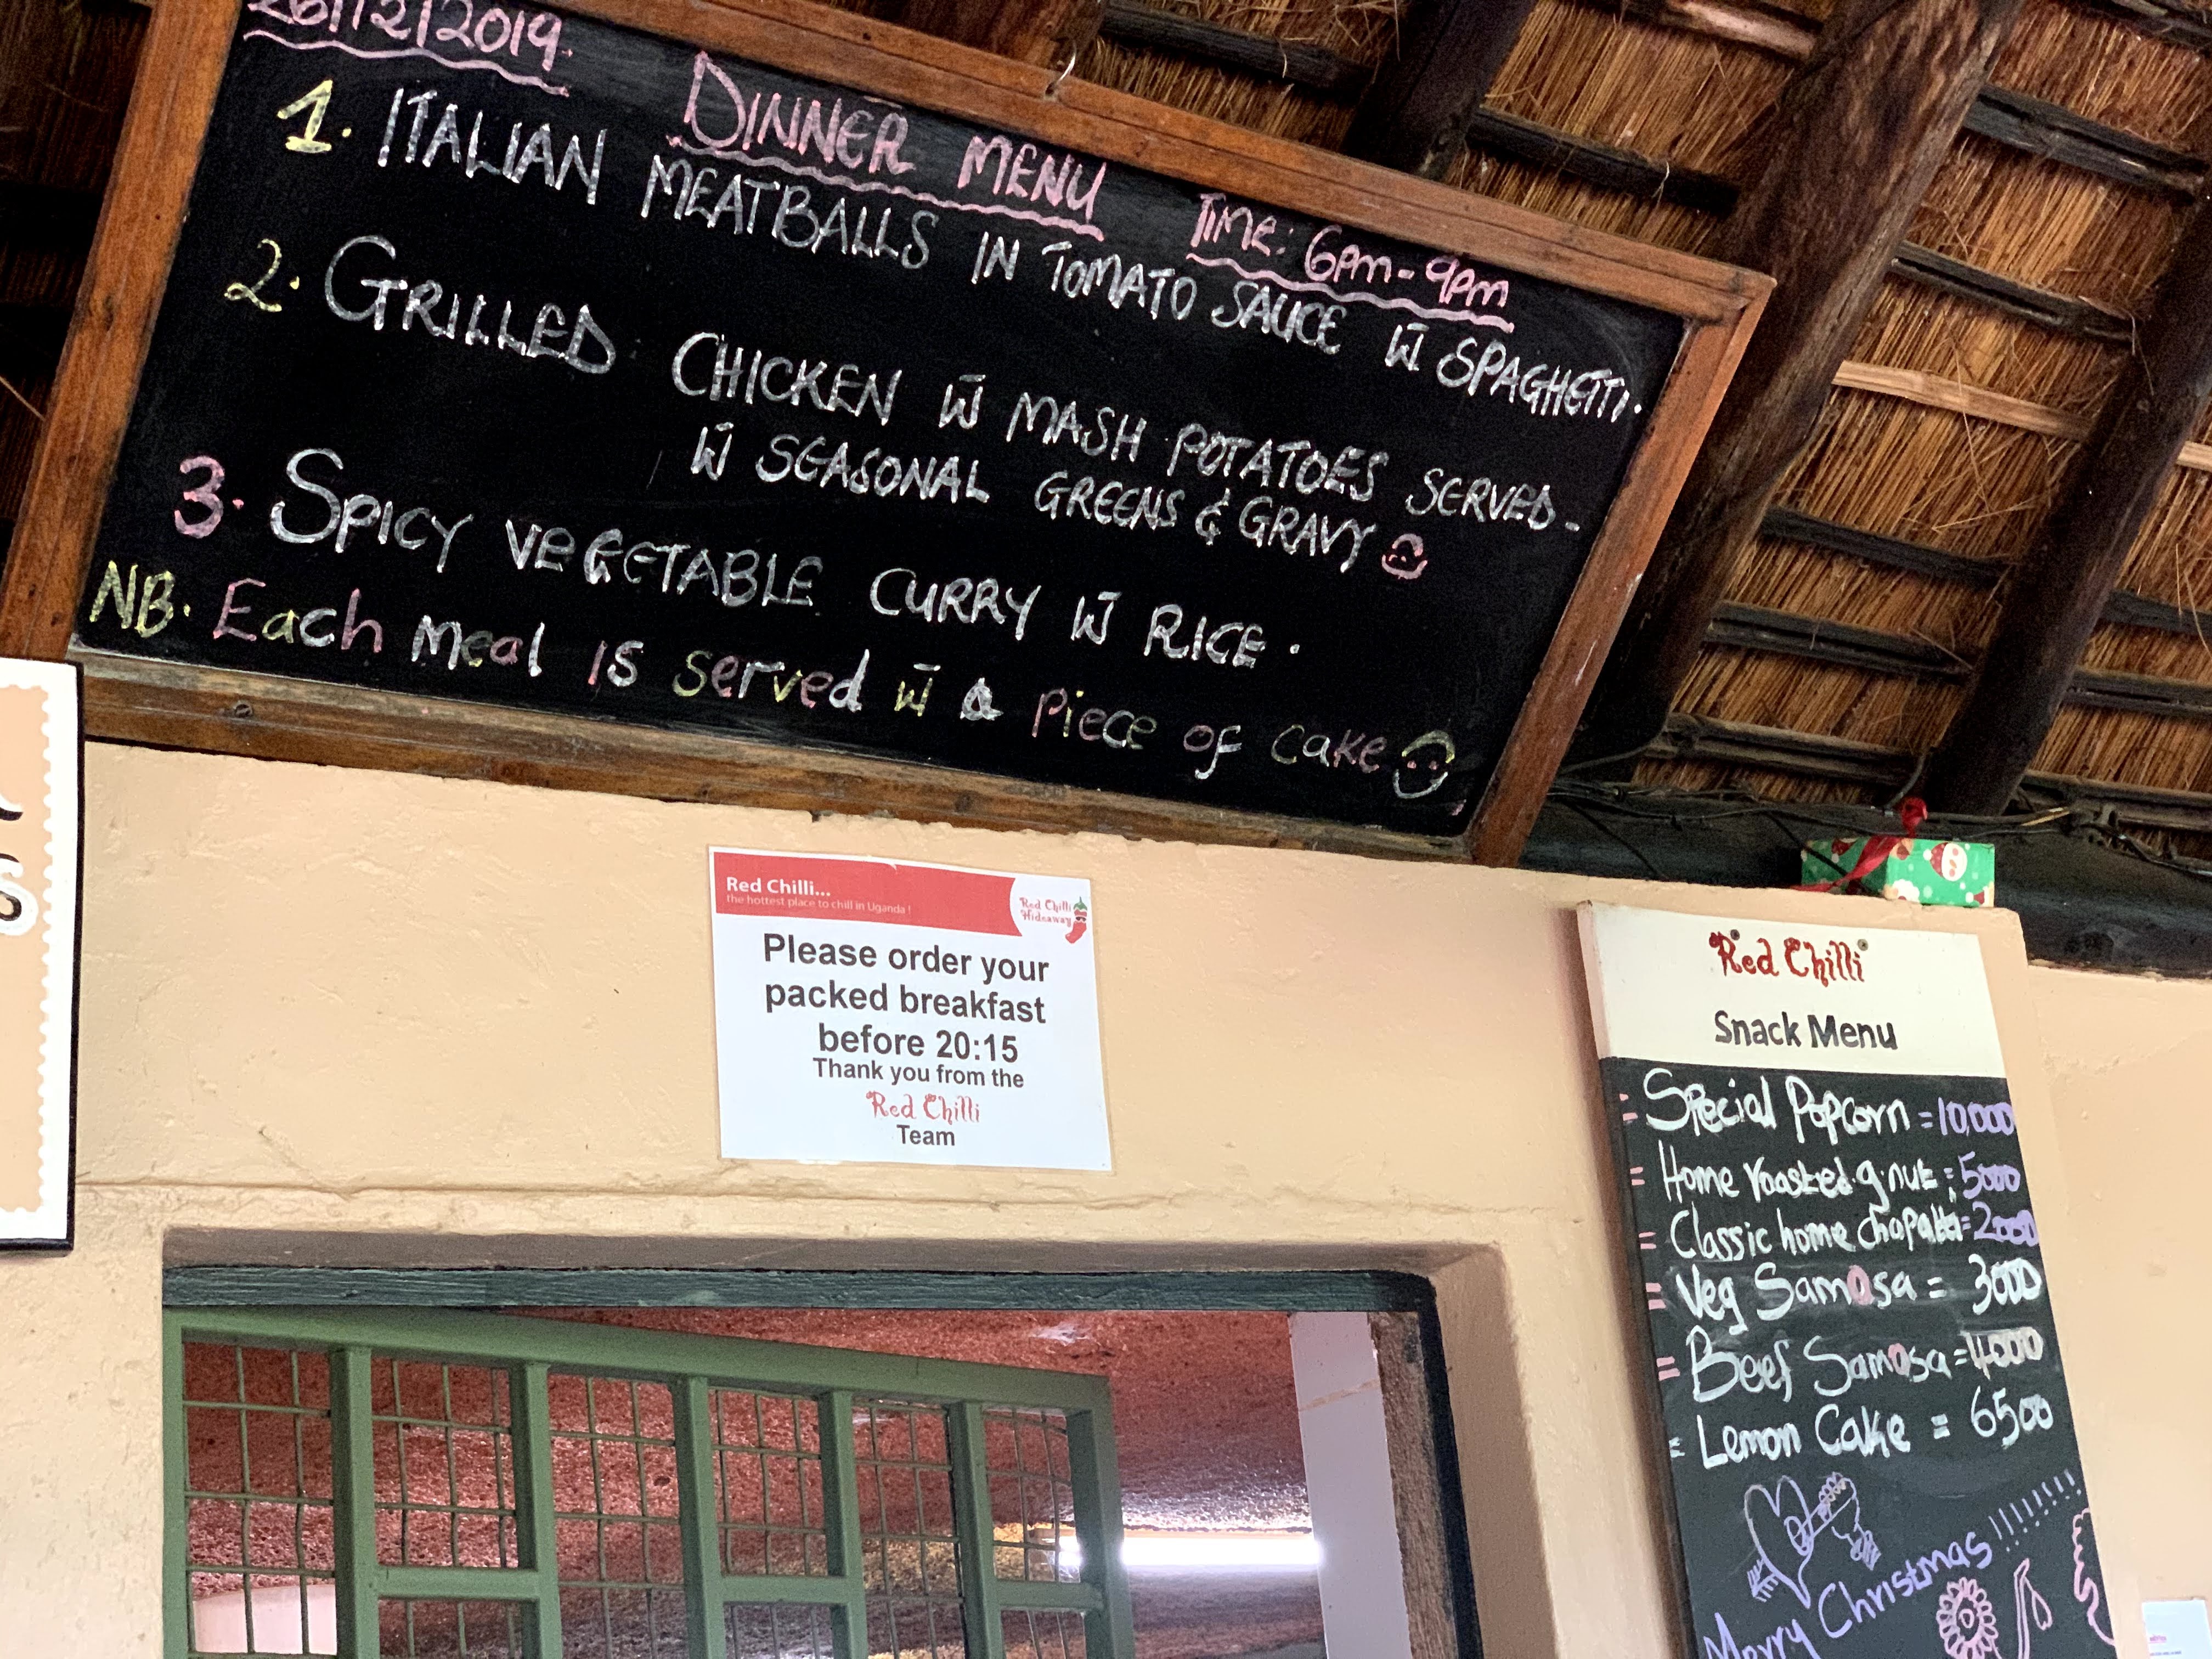 26/12/2019.
DINNER MENU TIME: 6pm-9pm
1. ITALIAN MEATBALLS IN TOMATO SAUCE W̄ SPAGHETTI.
2. GRILLED CHICKEN W̄ MASH POTATOES SERVED-
W̄ SEASONAL GREENS & GRAVY
3. SPICY VEGETABLE CURRY W̄ RICE.
NB. Each meal is served w̄ a piece of cake
Red Chilli...
the hottest place to chill in Uganda !
Red Chilli
Hideaway
Please order your
packed breakfast
before 20:15
Thank you from the
Red Chilli
Team
Red Chilli
Snack Menu
= Special Popcorn = 10,000
= Home roasted g.nut = 5000
= Classic home chapatti = 2000
= Veg Samosa = 3000
= Beef Samosa = 4000
= Lemon Cake = 6500
Merry Christmas !!!!!!!!